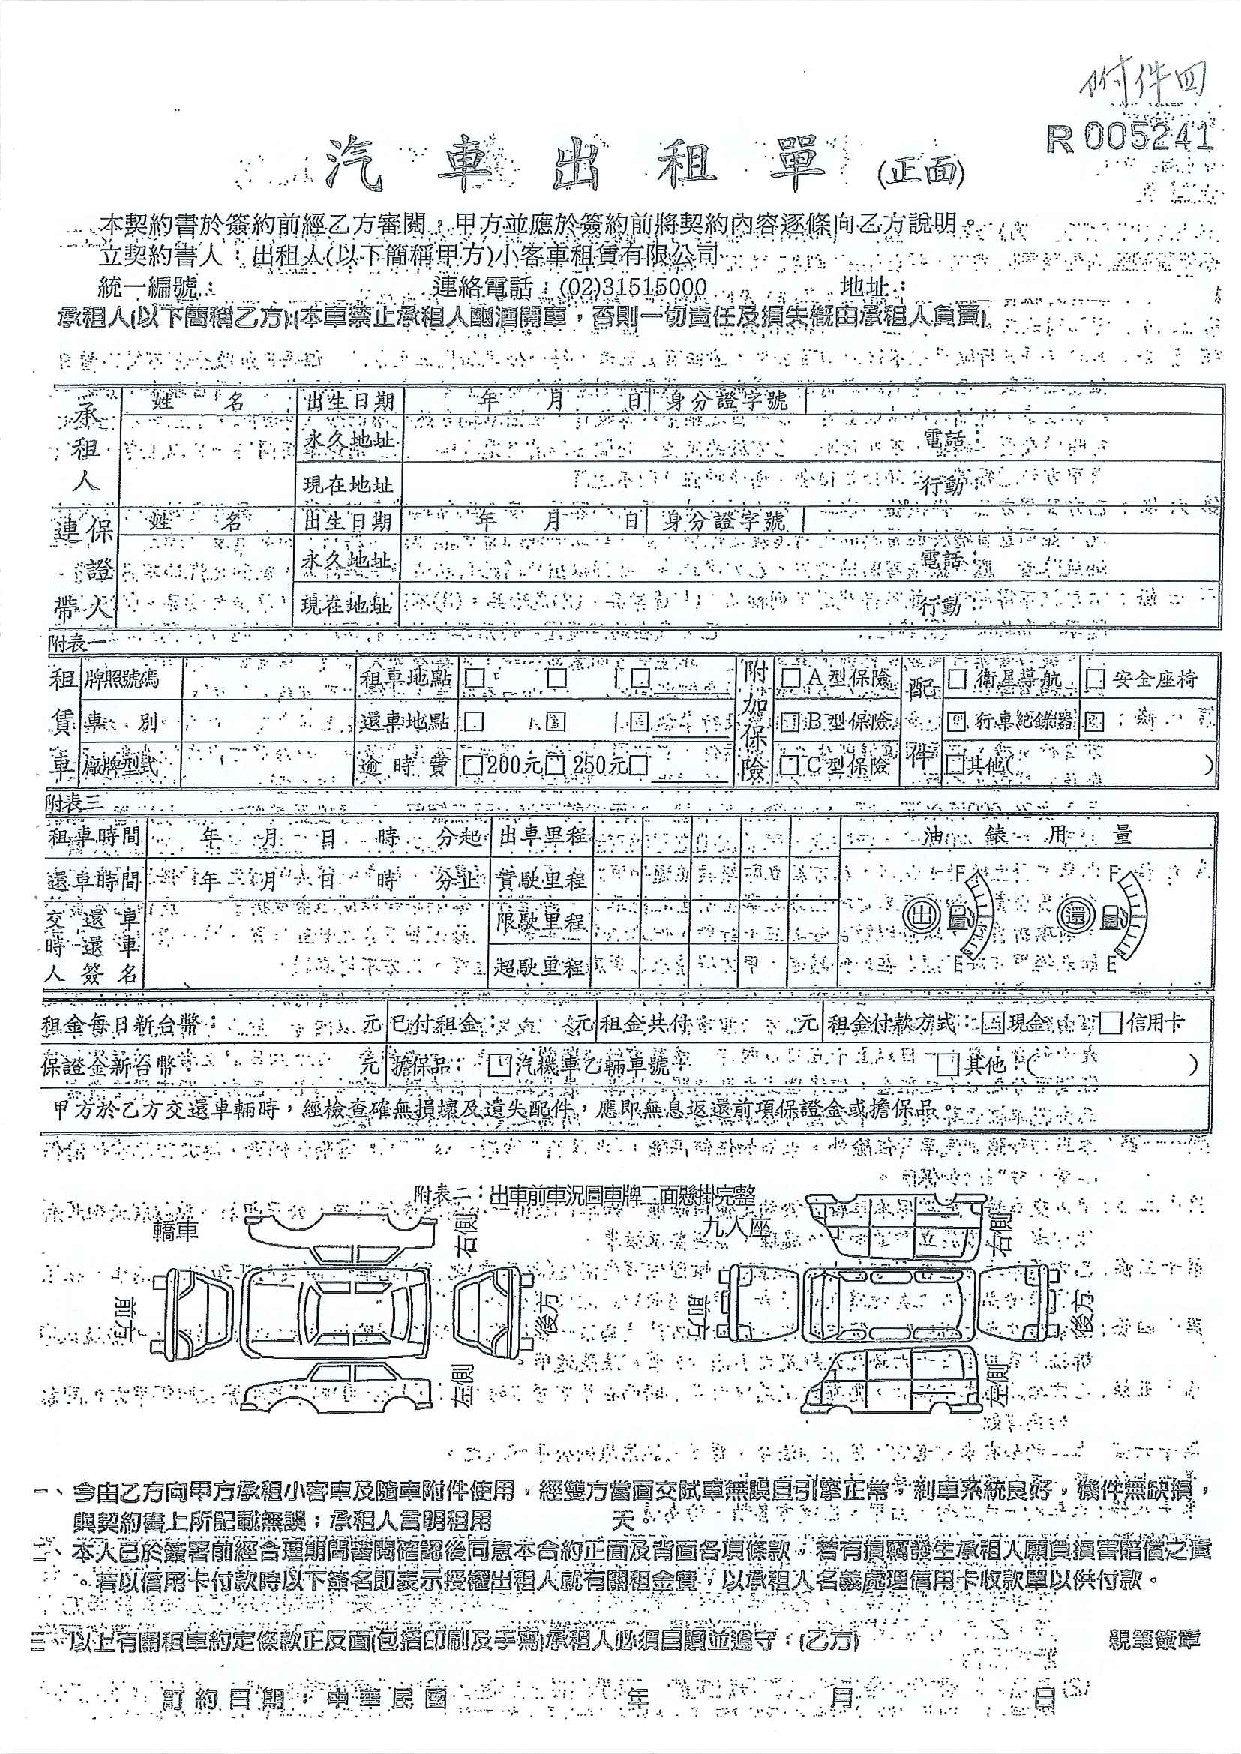 附件四
R 005241
汽車出租單(正面)
本契約書於簽約前經乙方審閱，甲方並應於簽約前將契約內容逐條向乙方說明。
立契約書人：出租人(以下簡稱甲方)小客車租賃有限公司
統一編號： 連絡電話：(02)31515000 地址：
承租人(以下簡稱乙方)(本車禁止承租人酗酒開車，否則一切責任及損失概由承租人負責)
承租人 姓 名 出生日期 年 月 日 身分證字號
永久地址 電話：
現在地址 行動：
連帶保證人 姓 名 出生日期 年 月 日 身分證字號
永久地址 電話：
現在地址 行動：
附表一
租賃車 牌照號碼 租車地點 □ □ □ 附加保險 □A型保險 配件 □衛星導航 □安全座椅
車 別 還車地點 □ □ □ □B型保險 □行車紀錄器 □
廠牌型式 逾時費 □200元□250元□ □C型保險 □其他( )
附表三
租車時間 年 月 日 時 分起 出車里程 油錶用量
還車時間 年 月 日 時 分止 實駛里程 F F
交還車時還車人簽名 限駛里程 出 還
超駛里程 E E
租金每日新台幣： 元 已付租金： 元 租金共付 元 租金付款方式：□現金 □信用卡
保證金新台幣 元 擔保品：□汽機車乙輛車號 □其他：( )
甲方於乙方交還車輛時，經檢查確無損壞及遺失配件，應即無息返還前項保證金或擔保品。
附表二：出車前車況圖車牌二面懸掛完整
轎車 右側 九人座 右側
前方 後方 前方 後方
左側 左側
一、今由乙方向甲方承租小客車及隨車附件使用，經雙方當面交試車無誤且引擎正常，剎車系統良好，機件無缺損，
與契約書上所記載無誤；承租人言明租用 天
二、本人已於簽署前經合理期間審閱確認後同意本合約正面及背面各項條款，若有損竊發生承租人願負損害賠償之責
。若以信用卡付款時以下簽名即表示授權出租人就有關租金費，以承租人名義處理信用卡收款單以供付款。
三、以上有關租車約定條款正反面(包括印刷及手寫)承租人必須自願並遵守：(乙方) 親筆簽章
訂約日期：中華民國 年 月 日